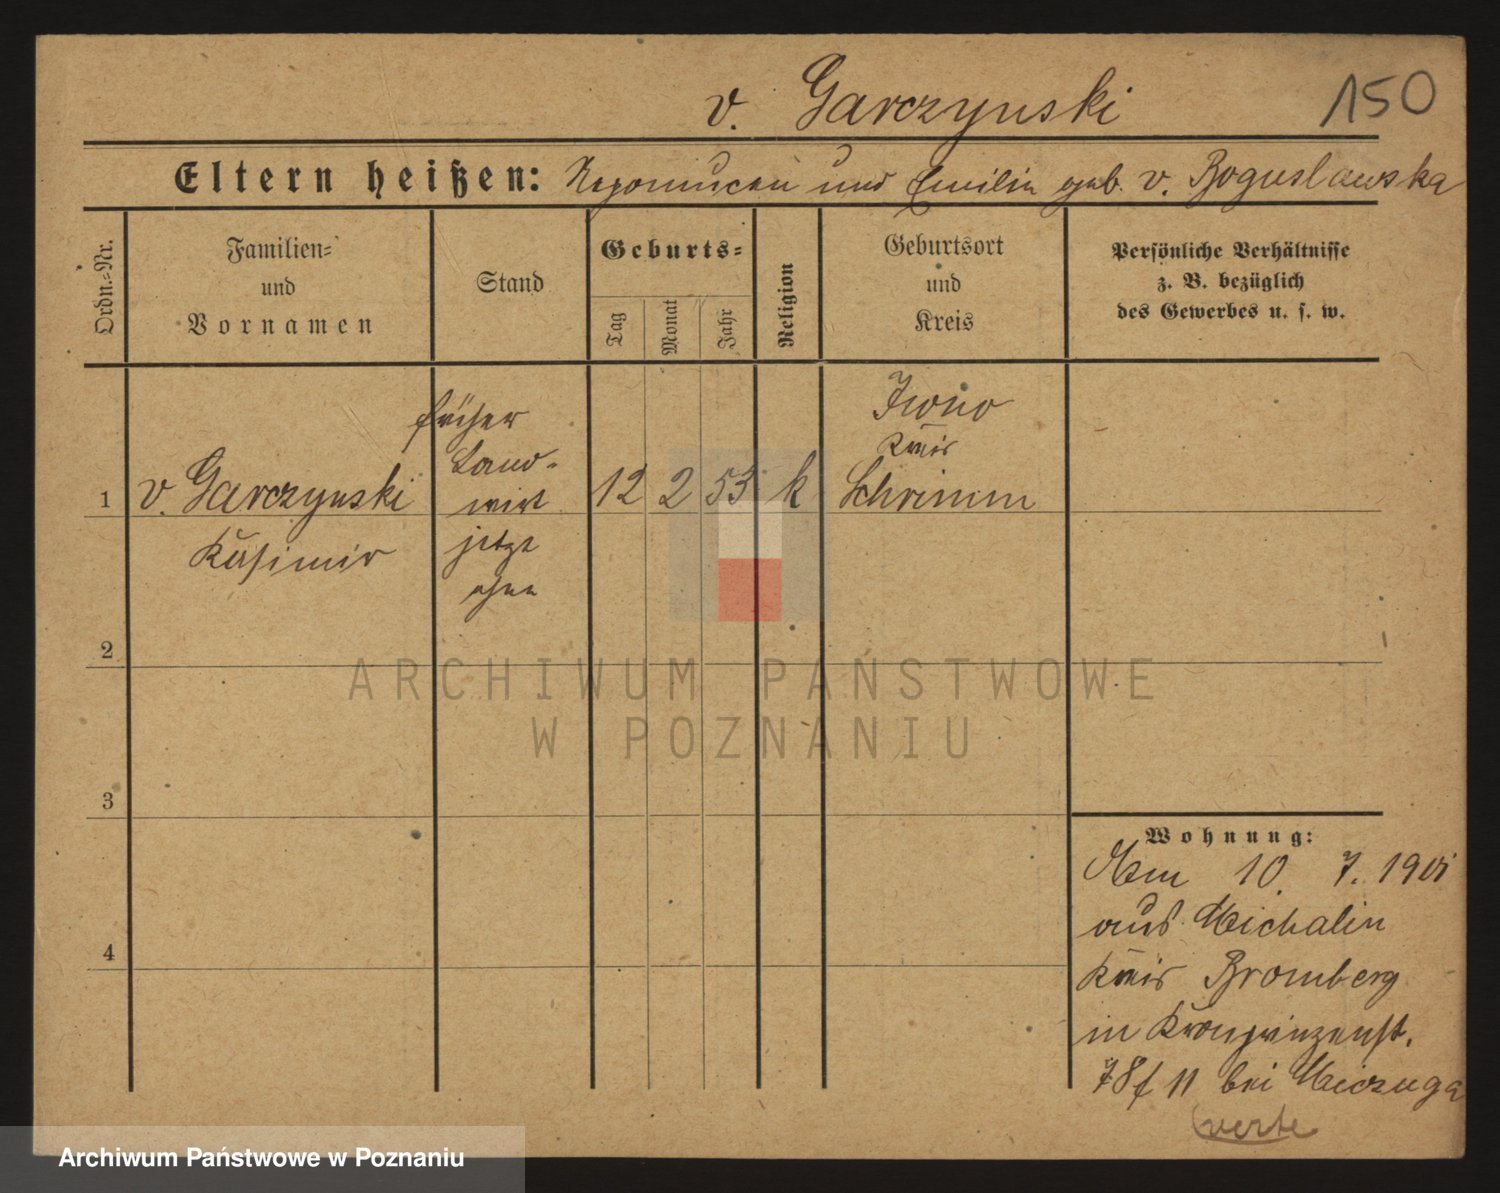 v. Garczynski
150
Eltern heißen: Nepomucen und Emilie geb. v. Boguslawska
Ordn.-Nr.
Familien-
und
Vornamen
Stand
Geburts-
Tag
Monat
Jahr
Religion
Geburtsort
und
Kreis
Persönliche Verhältnisse
z. B. bezüglich
des Gewerbes u. s. w.
1
v. Garczynski
Kasimir
früher
Land-
wirt
jetzt
ohne
12 2 53 k
Iwno
Kreis
Schrimm
2
ARCHIWUM PAŃSTWOWE
W POZNANIU
3
4
Wohnung:
10. 7.
aus Michalin
Kreis Bromberg
in Kronprinzenst.
78 11 bei
verte
Archiwum Państwowe w Poznaniu